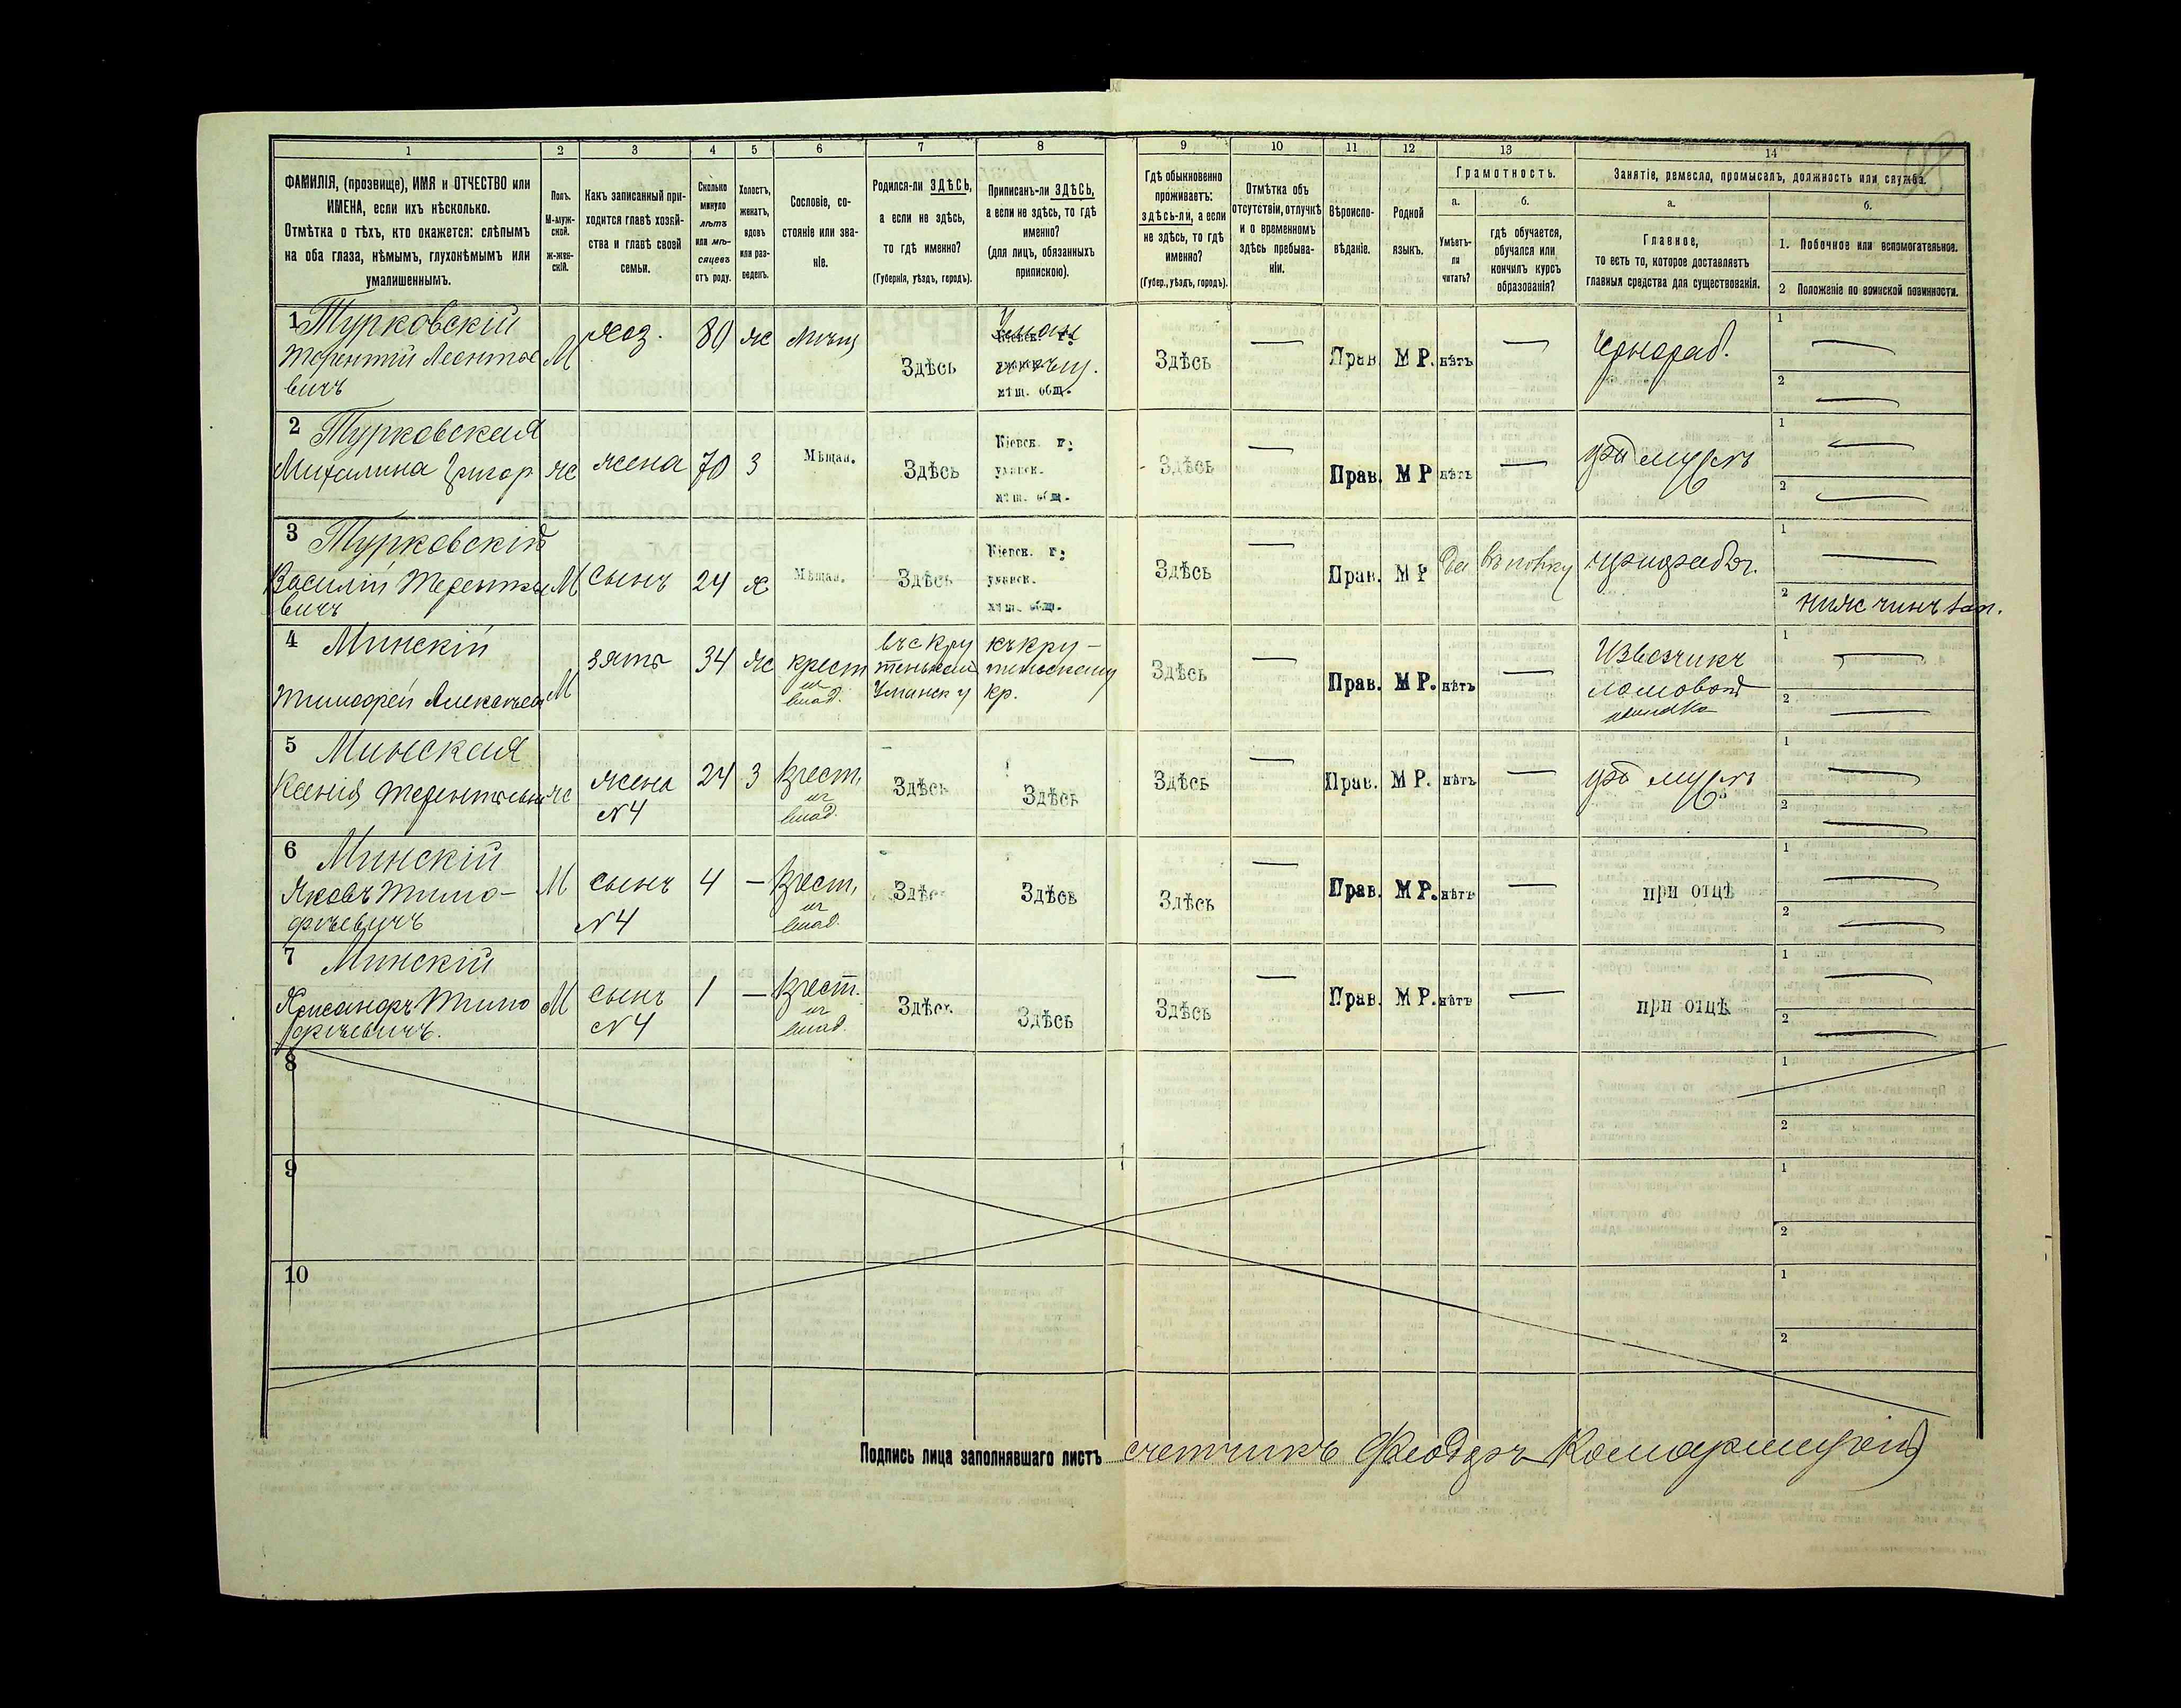 1 2 3 4 5 6 7 8 9 10 11 12 13 14
ФАМИЛІЯ, (прозвище), ИМЯ и ОТЧЕСТВО или
ИМЕНА, если ихъ нѣсколько.
Отмѣтка о тѣхъ, кто окажется: слѣпымъ
на оба глаза, нѣмымъ, глухонѣмымъ или
умалишеннымъ.
Полъ.
М-муж-
ской.
Ж-жен-
скій.
Какъ записанный при-
ходится главѣ хозяй-
ства и главѣ своей
семьи.
Сколько
минуло
лѣтъ
или мѣ-
сяцевъ
отъ роду.
Холостъ,
женатъ,
вдовъ
или раз-
веденъ.
Сословіе, со-
стояніе или зва-
ніе.
Родился-ли ЗДѢСЬ,
а если не здѣсь,
то гдѣ именно?
(Губернія, уѣздъ, городъ).
Приписанъ-ли ЗДѢСЬ,
а если не здѣсь, то гдѣ
именно?
(для лицъ, обязанныхъ
припискою).
Гдѣ обыкновенно
проживаетъ:
здѣсь-ли, а если
не здѣсь, то гдѣ
именно?
(Губер., уѣздъ, городъ).
Отмѣтка объ
отсутствіи, отлучкѣ
и о временномъ
здѣсь пребыва-
ніи.
Вѣроиспо-
вѣданіе.
Родной
языкъ.
Грамотность.
а.
Умѣетъ-
ли
читать?
б.
гдѣ обучается,
обучался или
кончилъ курсъ
образованія?
Занятіе, ремесло, промыселъ, должность или служба.
а.
Главное,
то есть то, которое доставляетъ
главныя средства для существованія.
б.
1. Побочное или вспомогательное.
2 Положеніе по воинской повинности.
1 Турковскій
Терентій Леонтье
вичъ
М
хоз.
80
ж
мѣщ
Здѣсь
Кіевск. г.
мѣщ. общ.
Здѣсь
—
Прав.
М Р.
нѣтъ
—
Чернораб.
1 —
2 —
2 Турковская
Михалина Григор
ж
жена
70
З
Мѣщан.
Здѣсь
Кіевск. г.
уманск.
мѣщ. общ.
Здѣсь
—
Прав.
М Р
нѣтъ
—
при мужѣ
1 —
2 —
3 Турковскій
Василій Терентье
вичъ
М
сынъ
24
х
Мѣщан.
Здѣсь
Кіевск. г.
уманск.
мѣщ. общ.
Здѣсь
—
Прав.
М Р
Да
чернораб.
1 —
2 ниж чинъ зап.
4 Минскій
Тимофей Алексѣев
М
зять
34
ж
крест
из
влад.
въ с Кру
тенькой
Уманск у
къ кру-
тенскому
кр.
Здѣсь
—
Прав.
М Р.
нѣтъ
—
Извозчикъ
ломовой
1 —
2 —
5 Минская
Ксенія Терентьевна
ж
жена
№ 4
24
З
Крест.
из
влад.
Здѣсь
Здѣсь
Здѣсь
—
Прав.
М Р.
нѣтъ
—
при мужѣ
1 —
2 —
6 Минскій
Яковъ Тимо-
фѣевичъ
М
сынъ
№ 4
4
—
Крест.
из
влад.
Здѣсь
Здѣсь
Здѣсь
—
Прав.
М Р.
нѣтъ
—
при отцѣ
1 —
2 —
7 Минскій
Александръ Тимо
фѣевичъ.
М
сынъ
№ 4
1
—
Крест.
из
влад.
Здѣсь
Здѣсь
Здѣсь
—
Прав.
М Р.
нѣтъ
—
при отцѣ
1 —
2 —
8
1
2
9
1
2
10
1
2
Подпись лица заполнявшаго листъ счетчикъ Феодоръ